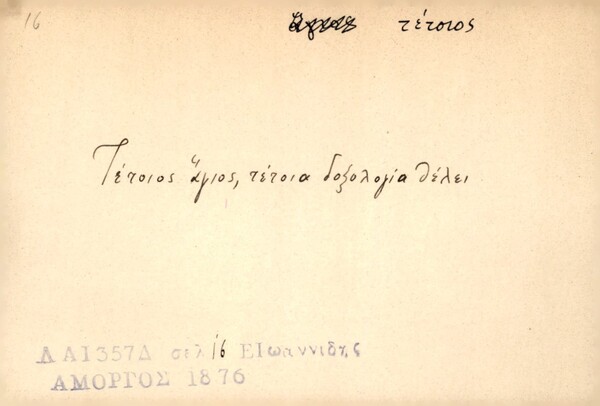 16
ἅγιος τέτοιος
Τέτοιος ἅγιος, τέτοια δοξολογία θέλει
ΛΑ1357Δ σελ 16 ΕΙωαννιδης
ΑΜΟΡΓΟΣ 1876